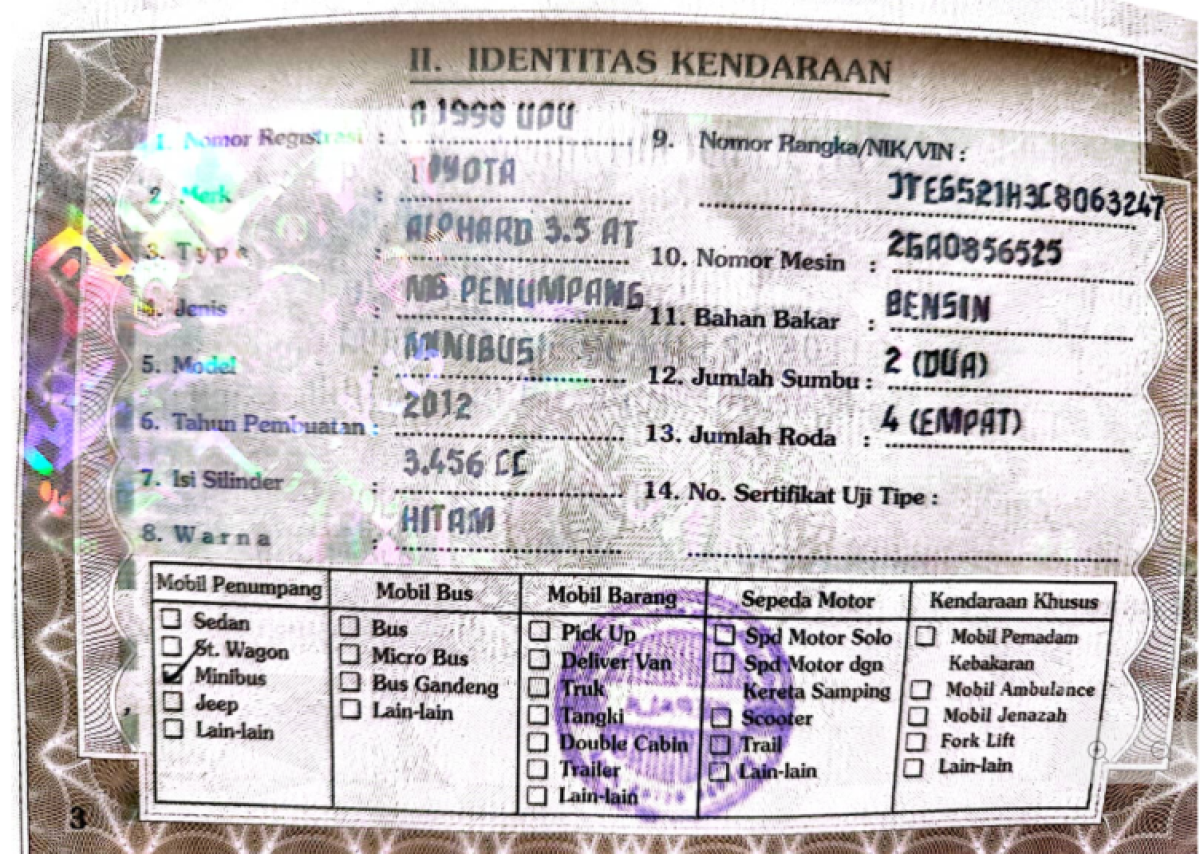 II. IDENTITAS KENDARAAN
1. Nomor Registrasi : 1998 UOU
2. Merk : TOYOTA
3. Type : ALPHARD 3.5 AT
4. Jenis : MB PENUMPANG
5. Model : MINIBUS
6. Tahun Pembuatan : 2012
7. Isi Silinder : 3.456 CC
8. Warna : HITAM
9. Nomor Rangka/NIK/VIN :
JTEGS21H3C8063247
10. Nomor Mesin : 2GR0856525
11. Bahan Bakar : BENSIN
12. Jumlah Sumbu : 2 (DUA)
13. Jumlah Roda : 4 (EMPAT)
14. No. Sertifikat Uji Tipe :
Mobil Penumpang
Sedan
St. Wagon
Minibus
Jeep
Lain-lain
Mobil Bus
Bus
Micro Bus
Bus Gandeng
Lain-lain
Mobil Barang
Pick Up
Deliver Van
Truk
Tangki
Double Cabin
Trailer
Lain-lain
Sepeda Motor
Spd Motor Solo
Spd Motor dgn
Kereta Samping
Scooter
Trail
Lain-lain
Kendaraan Khusus
Mobil Pemadam
Kebakaran
Mobil Ambulance
Mobil Jenazah
Fork Lift
Lain-lain
3